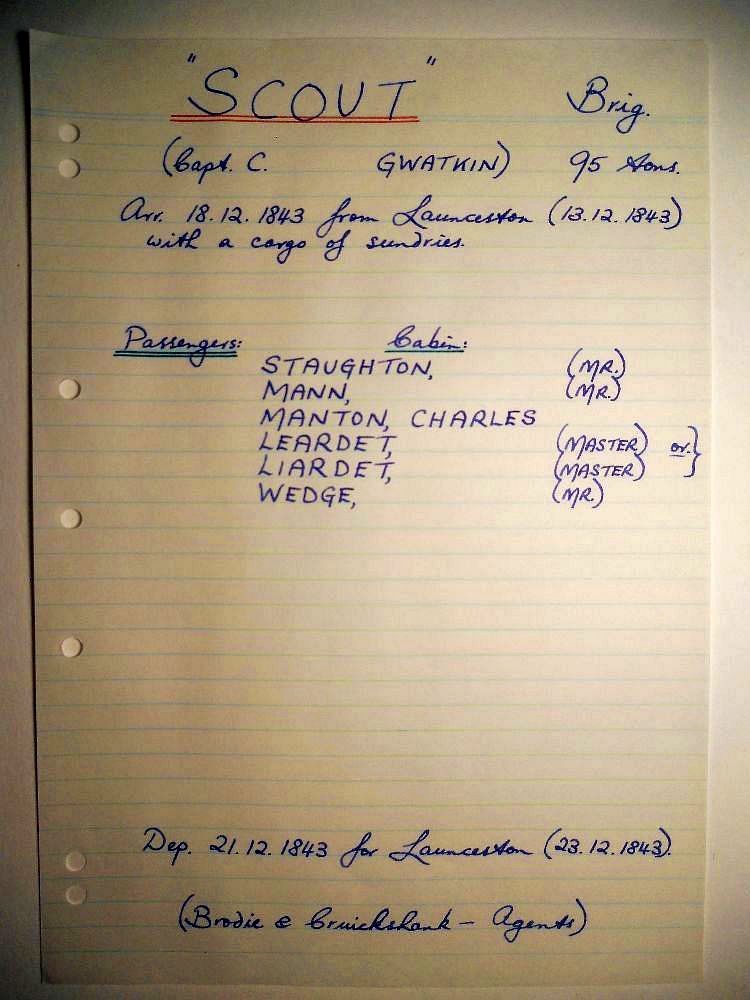 "SCOUT" Brig.
(Capt. C. GWATKIN) 95 tons.
Arr. 18.12.1843 from Launceston (13.12.1843)
with a cargo of sundries.
Passengers: Cabin:
STAUGHTON, (MR.)
MANN, (MR.)
MANTON, CHARLES
LEARDET, (MASTER) or }
LIARDET, (MASTER)
WEDGE, (MR.)
Dep. 21.12.1843 for Launceston (23.12.1843).
(Brodie & Cruickshank - Agents)